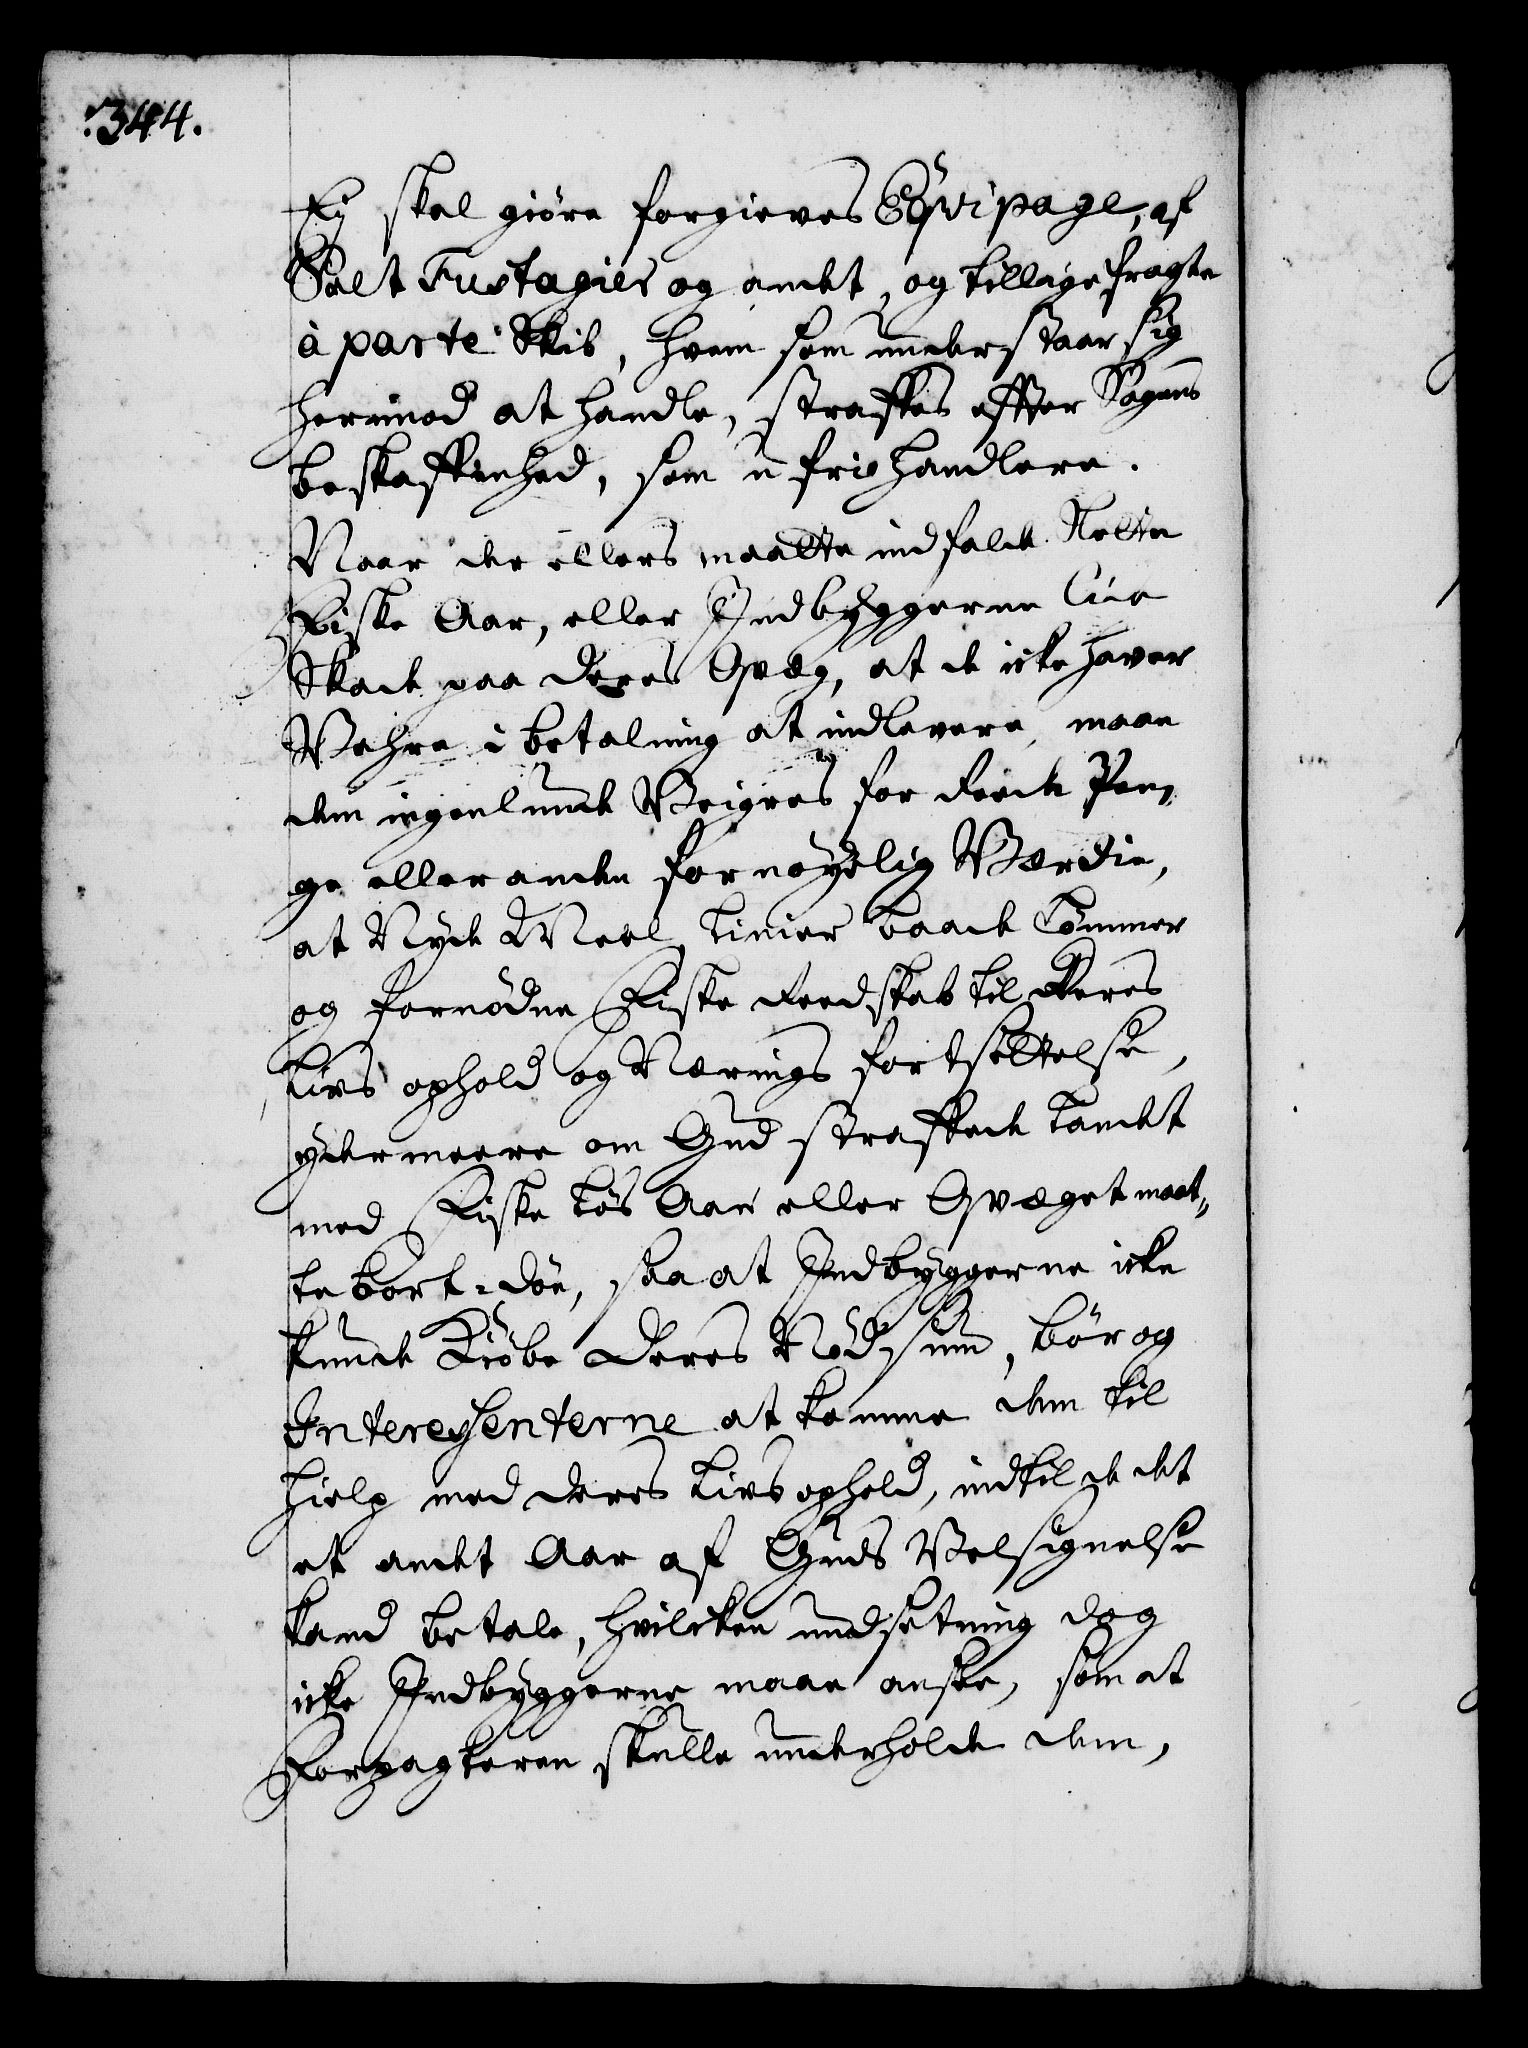 344.
Ej skal giöre forgieves Eqvipage, af
Salt Fustagier og andet, og tillige fragte
à parte Skib, hvem som understaar sig
herimod at handle, straffes effter Sagens
beskaffenhed, som u frie handlere.
Naar der ellers maatte indfalde Slette
Fiske Aar, eller Indbyggerne lide
Skade paa deres Qvæg, at de icke haver
Vahre i betalning at indlevere, maae
dem ingenlunde Veigres for reede Pen¬
ge eller anden fornøyelig Værdie,
at Nyde Meel, Liner baade Tömmer
og fornödne Fiske reedskab til deres
Livs ophold og Nærings fortsettelse,
ydermeere om Gud straffede Landet
med Fiske Lös Aar eller Qvæget maat¬
te bort-döe, saa at Indbyggerne icke
kunde Kiöbe deres Nödsum, bör og
Interessenterne at komme dem til
hielp med deres Livs ophold, indtil de det
et andet Aar af Guds Velsignelse
kand betale, hvilcken undsetning dog
icke Indbyggerne maae anske, som at
Forpagteren skulle underholde dem,